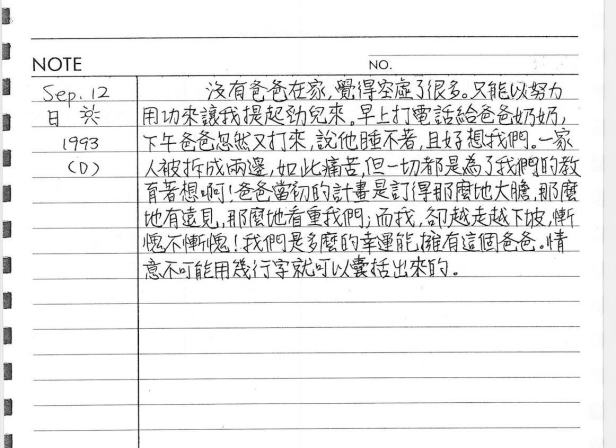 NOTE
NO.
Sep. 12
日
1993
(D)
沒有爸爸在家,覺得空虛了很多。又能以努力
用功來讓我提起勁兒來。早上打電話給爸爸奶奶,
下午爸爸忽然又打來,說他睡不著,且好想我們。一家
人被拆成兩邊,如此痛苦,但一切都是為了我們的教
育著想啊!爸爸當初的計畫是訂得那麼地大膽,那麼
地有遠見,那麼地看重我們;而我,卻越走越下坡,慚
愧不慚愧!我們是多麼的幸運能擁有這個爸爸。情
意不可能用幾行字就可以囊括出來的。